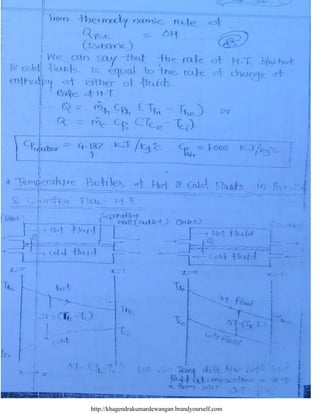 From thermodynamic rule of
Q P=c = ΔH
(Isobaric)
We can say that the rate of H.T. b/w hot
& cold fluids is equal to the rate of change of
enthalpy of either of fluids.
Rate of H.T.
Q = ṁh Cph (Thi - The) or
Q = ṁc Cpc (Tce - Tci)
Cpwater = 4.187 kJ/kg°C Cpair = 1.005 kJ/kg°C
* Temperature Profiles of Hot & Cold Fluids in
& Counter Flow H.E
(Inlet) Separating wall (outlet) (Inlet)
→ Hot fluid → Hot fluid
Q
→ Cold fluid ← Cold fluid
x=0 x=0
Thi hot Thi Hot fluid
The
ΔT = (Th - Tc) ΔT = (Th - Tc)
Tce Tce
cold cold fluid
Tci
ΔT = (Th - Tc)
http://khagendrakumardewangan.brandyourself.com